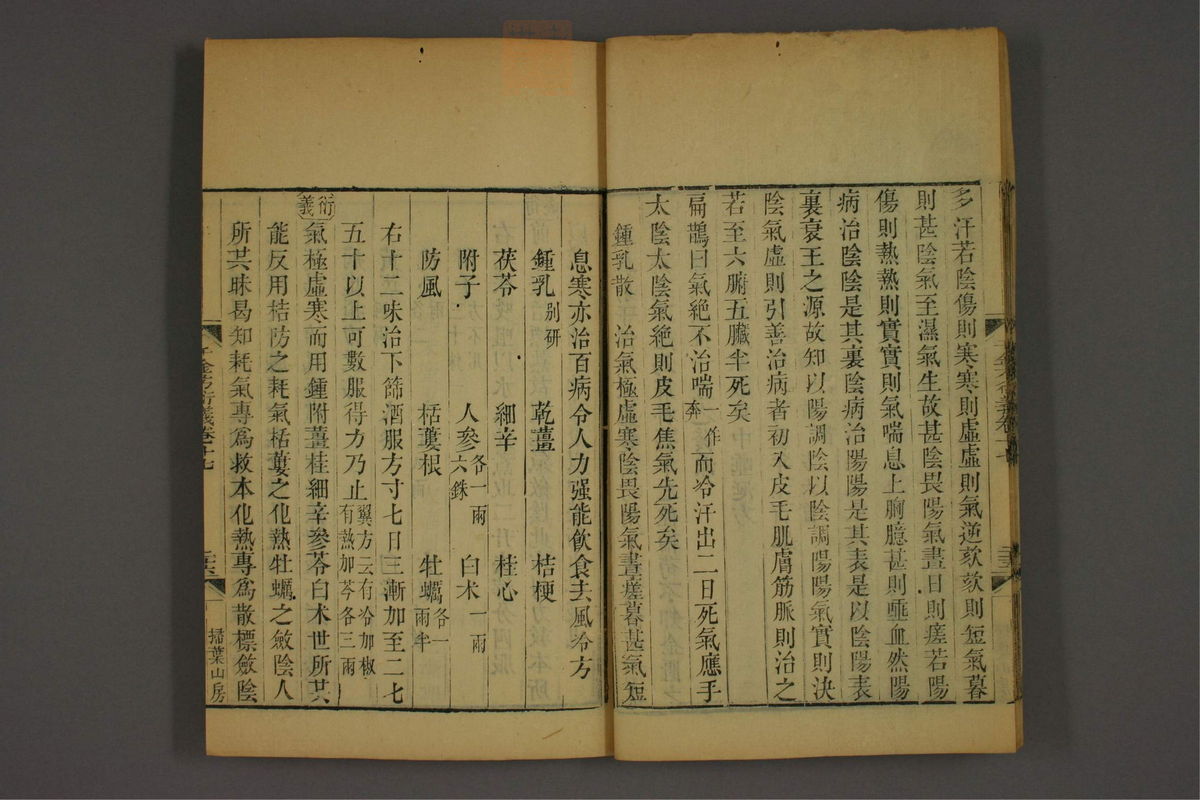 多汗若陰傷則寒寒則虛虛則氣逆欬欬則短氣暮
則甚陰氣至濕氣生故甚陰畏陽氣晝日則瘥若陽
傷則熱熱則實實則氣喘息上胸臆甚則唾血然陽
病治陰陰是其裏陰病治陽陽是其表是以陰陽表
裏衰王之源故知以陽調陰以陰調陽陽氣實則決
陰氣虛則引善治病者初入皮毛肌膚筋脈則治之
若至六腑五臟半死矣
扁鵲曰氣絕不治喘一作奔而冷汗出二日死氣應手
太陰太陰氣絕則皮毛焦氣先死矣
鍾乳散 治氣極虛寒陰畏陽氣晝瘥暮甚氣短
息寒亦治百病令人力强能飲食去風冷方
鍾乳別研 乾薑 桔梗
茯苓 細辛 桂心
附子 人參各一兩六銖 白朮一兩
防風 栝蔞根 牡蠣各一兩半
右十二味治下篩酒服方寸七日三漸加至二七
五十以上可數服得方乃止翼方云有冷加椒有熱加芩各三兩
衍義
氣極虛寒而用鍾附薑桂細辛參苓白朮世所共
能反用桔防之耗氣栝蔞之化熱牡蠣之斂陰人
所共昧曷知耗氣專爲救本化熱專爲散標斂陰
千金方衍義卷十七
掃葉山房